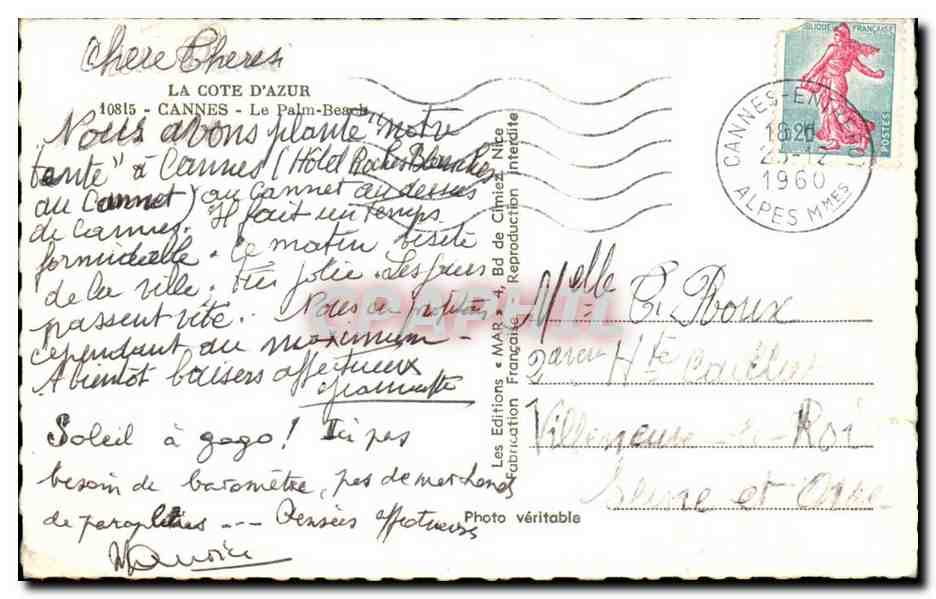 Chere Theresi
LA COTE D'AZUR
10815 - CANNES - Le Palm-Beach
Nous avons planté notre
tente" à Cannes (Hôtel Roches Blanches
au Cannet) au Cannet au dessus
de Cannes. Il fait un temps
formidable. Ce matin visite
de la ville. Très jolie. Les jours
passent vite. Nous en profitons
cependant au maximum -
A bientôt baisers affectueux
Jeannette
Soleil à gogo! Ici pas
besoin de baromètre, pas de marchands
de parapluies --- Pensées affectueuses
Maurice
Les Editions « MAR » 4, Bd de Cimiez Nice
Fabrication Française Reproduction interdite
Photo véritable
BLIQUE FRANÇAISE
POSTES
CANNES-EN
18 20
12
1960
ALPES MMES
Melle C. Roux
Hte
Villeneuve Roi
Seine et Oise
CPAPHIL